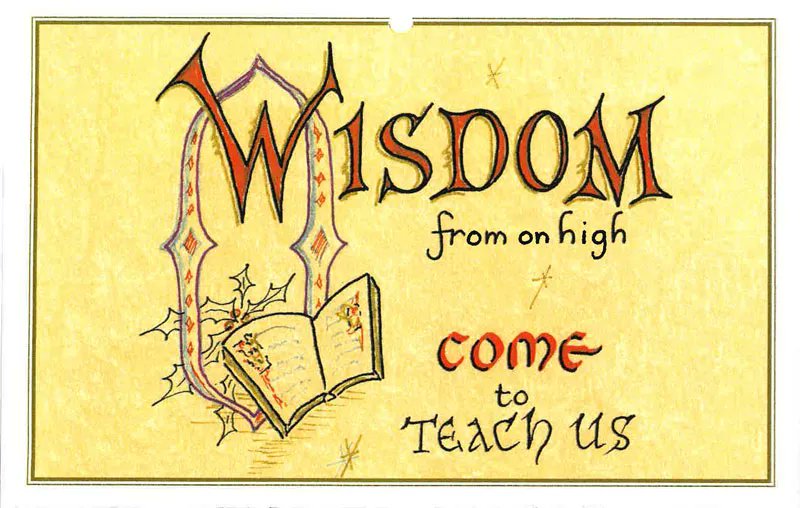 O WISDOM
from on high
COME
to
TEACH US